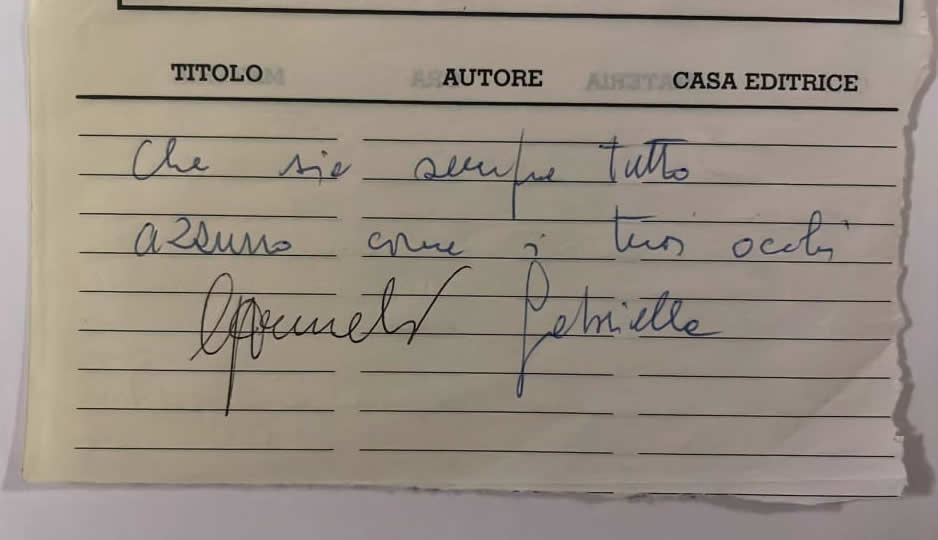 TITOLO AUTORE CASA EDITRICE
Che sia sempre tutto
azzurro come i tuoi occhi
Gabriella